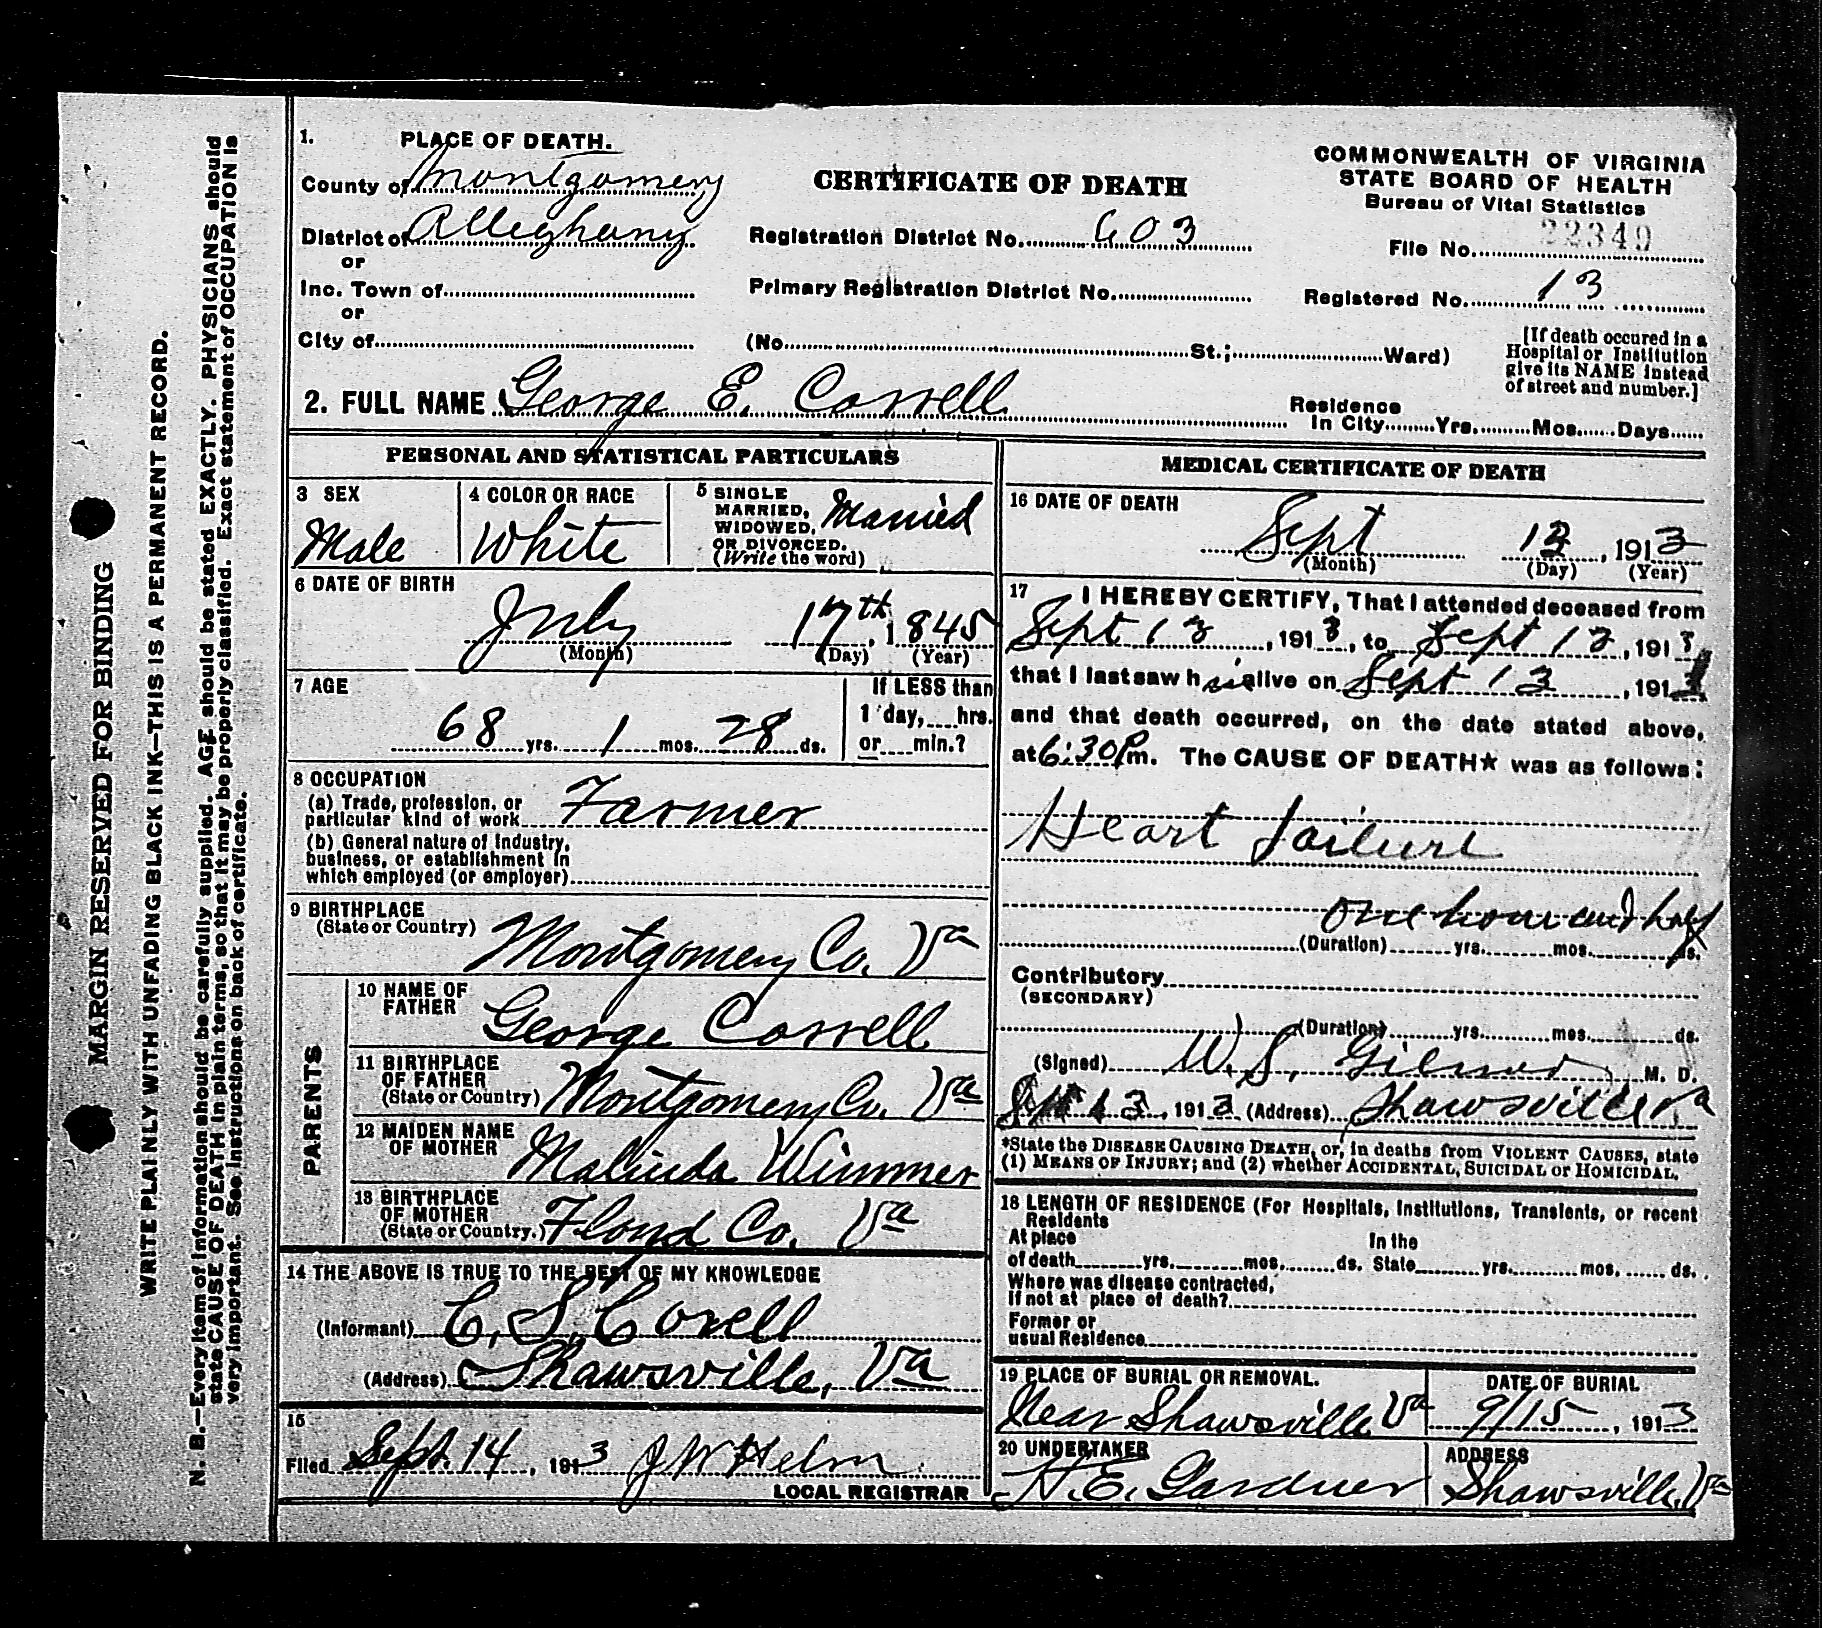 MARGIN RESERVED FOR BINDING
WRITE PLAINLY WITH UNFADING BLACK INK—THIS IS A PERMANENT RECORD.
N. B.—Every item of information should be carefully supplied. AGE should be stated EXACTLY. PHYSICIANS should
state CAUSE OF DEATH in plain terms, so that it may be properly classified. Exact statement of OCCUPATION is
very important. See instructions on back of certificate.
1. PLACE OF DEATH.
County of Montgomery
District of Alleghany
or
Inc. Town of
or
City of
CERTIFICATE OF DEATH
Registration District No. 603
Primary Registration District No.
(No. St.; Ward)
COMMONWEALTH OF VIRGINIA
STATE BOARD OF HEALTH
Bureau of Vital Statistics
File No. 22349
Registered No. 13
[If death occured in a
Hospital or Institution
give its NAME instead
of street and number.]
2. FULL NAME George E. Correll
Residence
In City Yrs. Mos. Days
PERSONAL AND STATISTICAL PARTICULARS
3 SEX
Male
4 COLOR OR RACE
White
5 SINGLE
MARRIED,
WIDOWED,
OR DIVORCED.
(Write the word)
Married
6 DATE OF BIRTH
July 17th, 1845
(Month) (Day) (Year)
7 AGE
68 yrs. 1 mos. 28 ds.
If LESS than
1 day, hrs.
or min.?
8 OCCUPATION
(a) Trade, profession, or
particular kind of work Farmer
(b) General nature of Industry,
business, or establishment in
which employed (or employer)
9 BIRTHPLACE
(State or Country) Montgomery Co. Va
PARENTS
10 NAME OF
FATHER George Correll
11 BIRTHPLACE
OF FATHER
(State or Country) Montgomery Co. Va
12 MAIDEN NAME
OF MOTHER Malinda Wimmer
13 BIRTHPLACE
OF MOTHER
(State or Country.) Floyd Co. Va
14 THE ABOVE IS TRUE TO THE BEST OF MY KNOWLEDGE
(Informant) C. S. Correll
(Address) Shawsville, Va
15
Filed Sept. 14, 1913 J W Helm
LOCAL REGISTRAR
MEDICAL CERTIFICATE OF DEATH
16 DATE OF DEATH
Sept 13, 1913
(Month) (Day) (Year)
17 I HEREBY CERTIFY, That I attended deceased from
Sept 13, 1913, to Sept 13, 1913,
that I last saw h alive on Sept 13, 1913
and that death occurred, on the date stated above,
at 6:30 Pm. The CAUSE OF DEATH* was as follows:
Heart failure
one hour and half
(Duration) yrs. mos. ds.
Contributory
(SECONDARY)
(Duration) yrs. mos. ds.
(Signed) W. S. Gilmer M. D.
Sept 13, 1913 (Address) Shawsville Va
*State the DISEASE CAUSING DEATH, or, in deaths from VIOLENT CAUSES, state
(1) MEANS OF INJURY; and (2) whether ACCIDENTAL, SUICIDAL or HOMICIDAL.
18 LENGTH OF RESIDENCE (For Hospitals, Institutions, Transients, or recent
Residents
At place In the
of death yrs. mos. ds. State yrs. mos. ds.
Where was disease contracted,
If not at place of death?
Former or
usual Residence
19 PLACE OF BURIAL OR REMOVAL.
Near Shawsville Va
DATE OF BURIAL
9/15, 1913
20 UNDERTAKER
H. E. Gardner
ADDRESS
Shawsville, Va